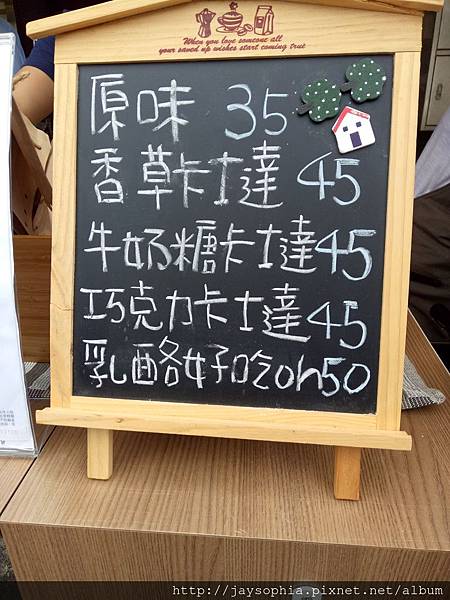 When you love someone all
your saved up wishes start coming true
原味 35
香草卡士達 45
牛奶糖卡士達 45
巧克力卡士達 45
乳酪好吃oh 50
http://jaysophia.pixnet.net/album